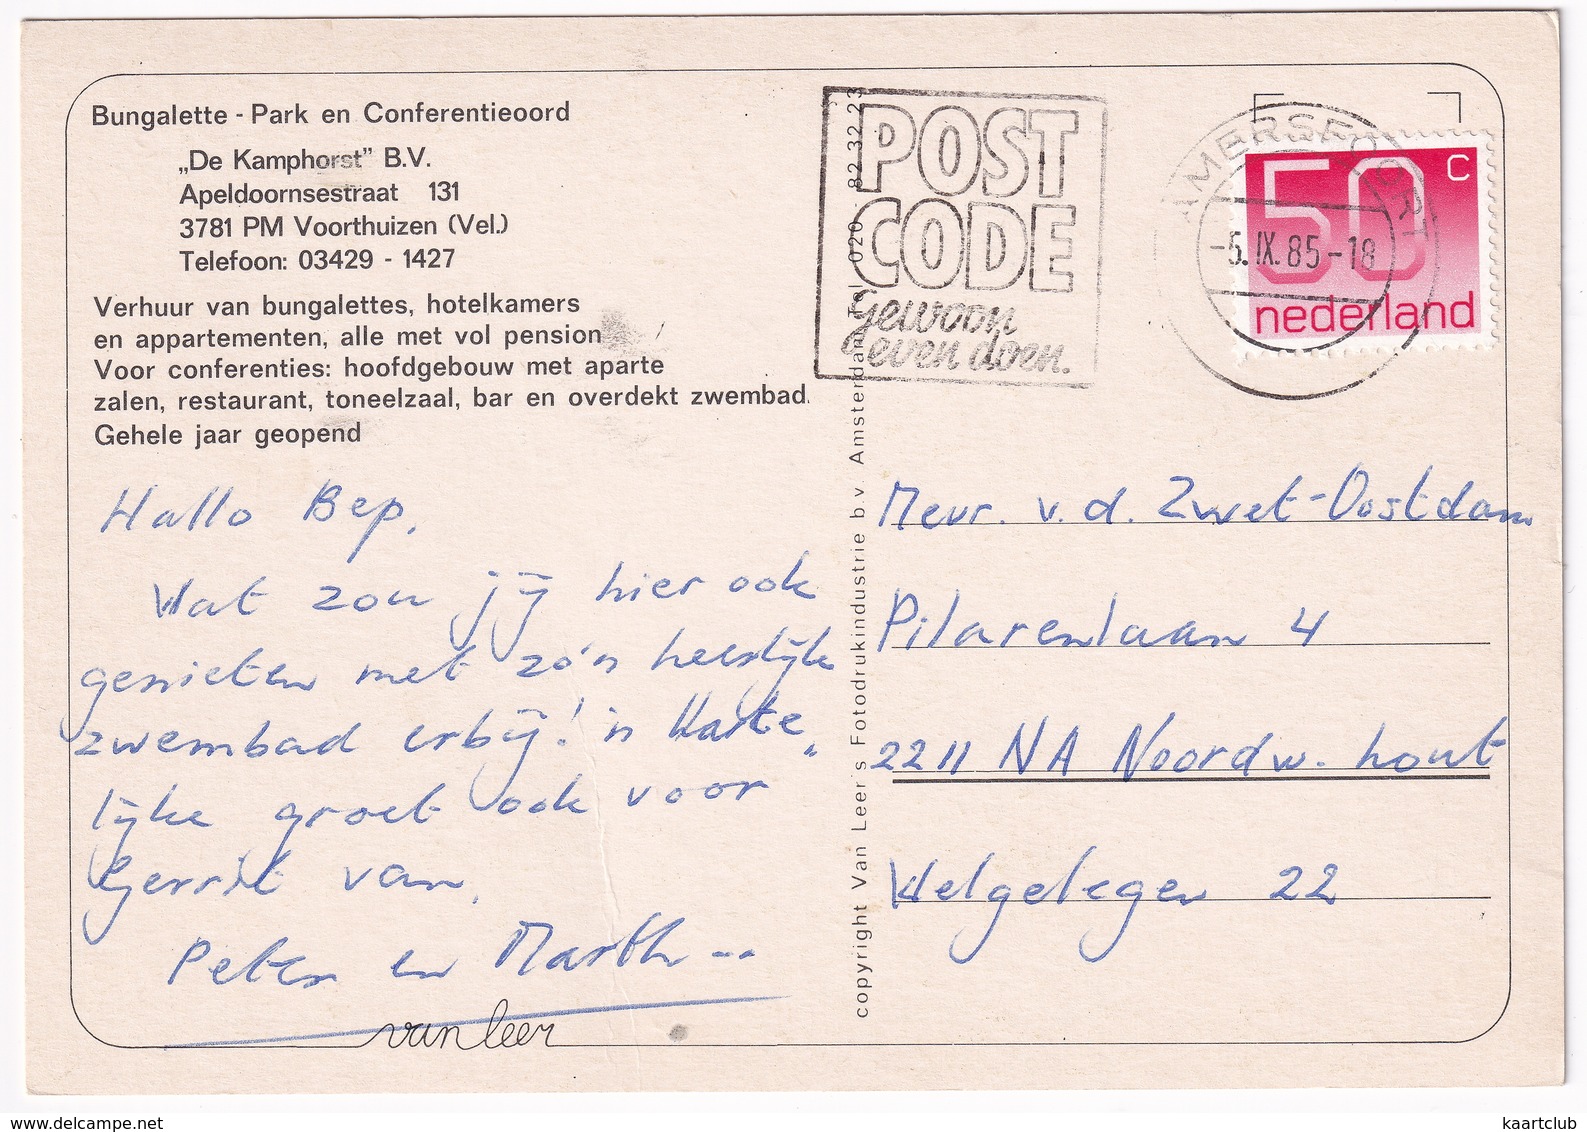 Bungalette - Park en Conferentieoord
„De Kamphorst” B.V.
Apeldoornsestraat 131
3781 PM Voorthuizen (Vel.)
Telefoon: 03429 - 1427
Verhuur van bungalettes, hotelkamers
en appartementen, alle met vol pension
Voor conferenties: hoofdgebouw met aparte
zalen, restaurant, toneelzaal, bar en overdekt zwembad.
Gehele jaar geopend
Hallo Bep,
Wat zou jij hier ook
genieten met zo'n heerlijk
zwembad erbij! 'n Harte„
lijke groet ook voor
Gerrit van,
Peter en Marth
van leer
copyright Van Leer's Fotodrukindustrie b.v. Amsterdam Tel 020 - 82 32 23
POST
CODE
gewoon
even doen.
AMERSFOORT
-5.IX.85-18
50 c
nederland
Mevr. v.d. Zwet-Oostdam
Pilarenlaan 4
2211 NA Noordw. hout
Welgelegen 22
www.delcampe.net
kaartclub